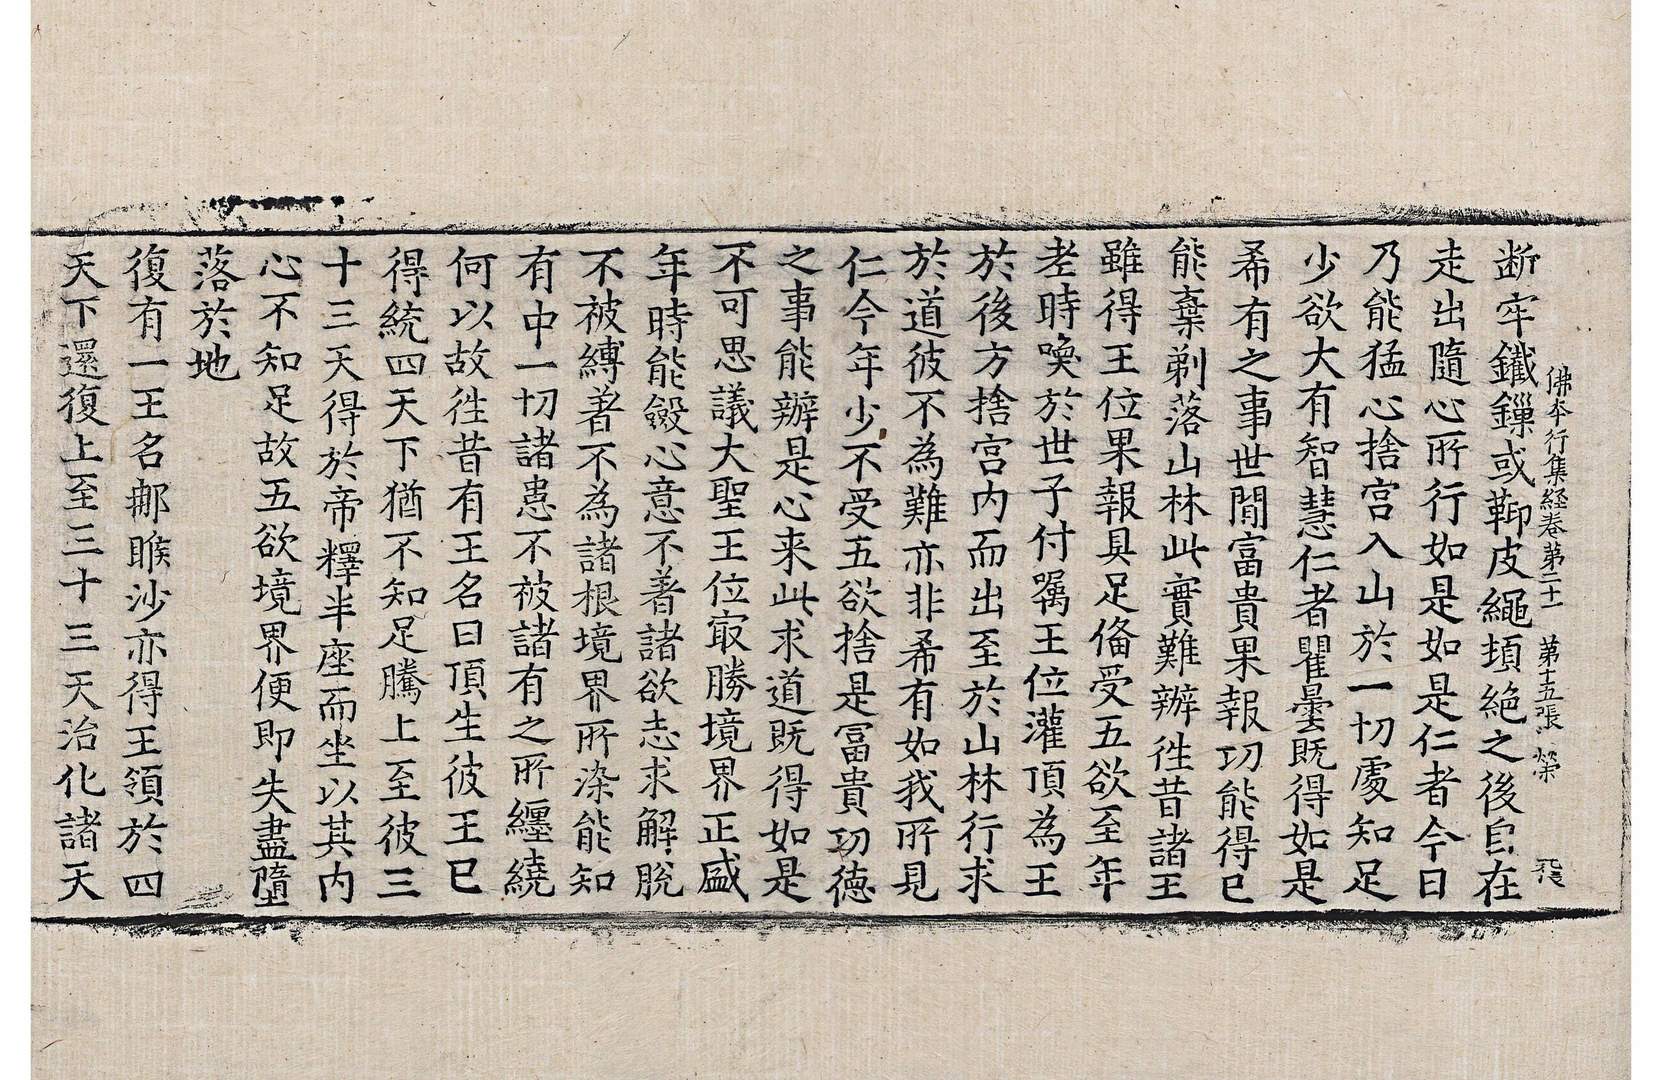 佛本行集経卷第二十一 第十五張 榮
断牢鐵鏁或鞕皮繩頓絶之後自在
走出隨心所行如是如是仁者今日
乃能猛心捨宮入山於一切處知足
少欲大有智慧仁者瞿曇既得如是
希有之事世間富貴果報功能得已
能棄剃落山林此實難辦徃昔諸王
雖得王位果報具足俻受五欲至年
老時喚於世子付嘱王位灌頂為王
於後方捨宮内而出至於山林行求
於道彼不為難亦非希有如我所見
仁今年少不受五欲捨是富貴功德
之事能辦是心来此求道既得如是
不可思議大聖王位㝡勝境界正盛
年時能斂心意不著諸欲志求解脫
不被縛著不為諸根境界所染能知
有中一切諸患不被諸有之所纏繞
何以故徃昔有王名曰頂生彼王已
得統四天下猶不知足騰上至彼三
十三天得於帝釋半座而坐以其内
心不知足故五欲境界便即失盡墮
落於地
復有一王名那睺沙亦得王領於四
天下還復上至三十三天治化諸天